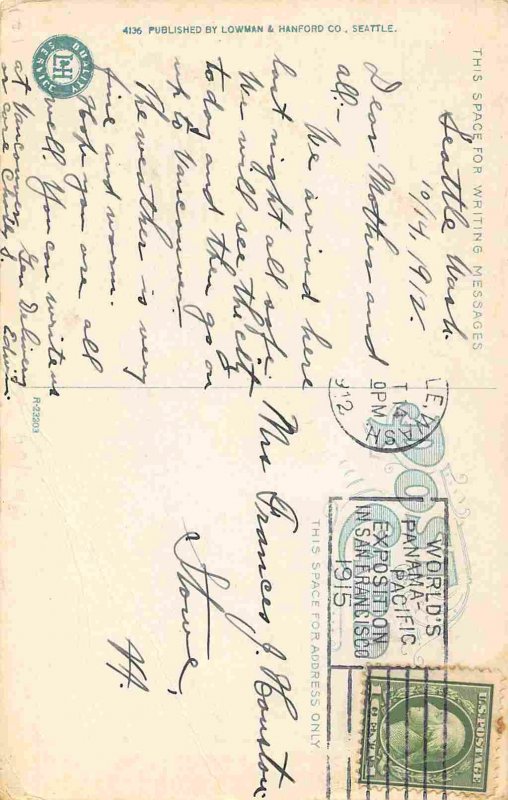 4136 PUBLISHED BY LOWMAN & HANFORD CO., SEATTLE.
QUALITY
L&H
SERVICE
THIS SPACE FOR WRITING MESSAGES
Seattle Wash.
10/14, 1912.
Dear Mother and
all:-
We arrived here
last night all safe.
We will see the city
today and then go on
up to Vancouver.
The weather is very
fine and warm.
Hope you are all
well. You can write us
at Vancouver Gen Delivery
or care Chateau
Edwin.
R-23203
POST
OCT 14
PM
1912
WORLD'S
PANAMA-
PACIFIC
EXPOSITION
IN SAN FRANCISCO
1915
U.S. POSTAGE
THIS SPACE FOR ADDRESS ONLY
Mrs Frances J. Houston
Stowe,
Vt.